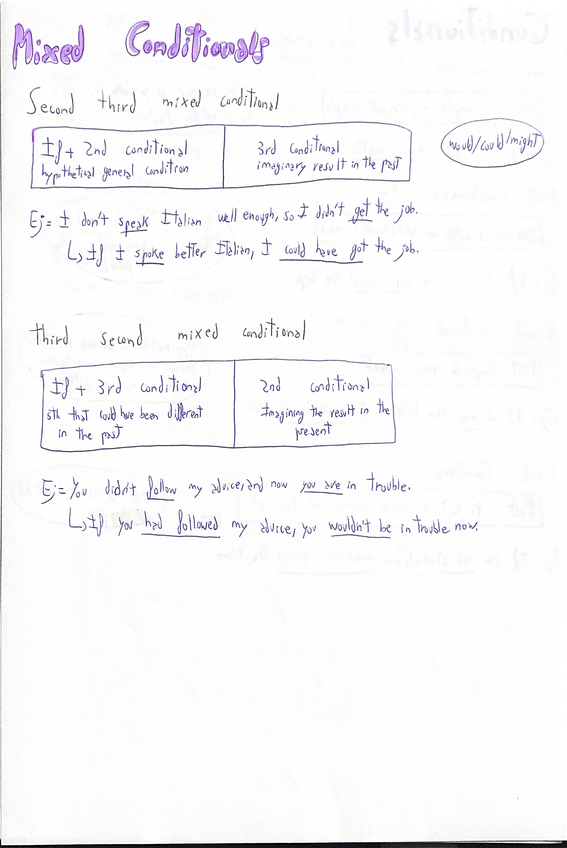 Mixed Conditionals
Second third mixed conditional
If + 2nd conditional
hypothetical general condition
3rd conditional
imaginary result in the past
would/could/might
Ej= I don't speak Italian well enough, so I didn't get the job.
If I spoke better Italian, I could have got the job.
third second mixed conditional
If + 3rd conditional
sth that could have been different
in the past
2nd conditional
Imagining the result in the
present
Ej= You didn't follow my advice, and now you are in trouble.
If you had followed my advice, you wouldn't be in trouble now.